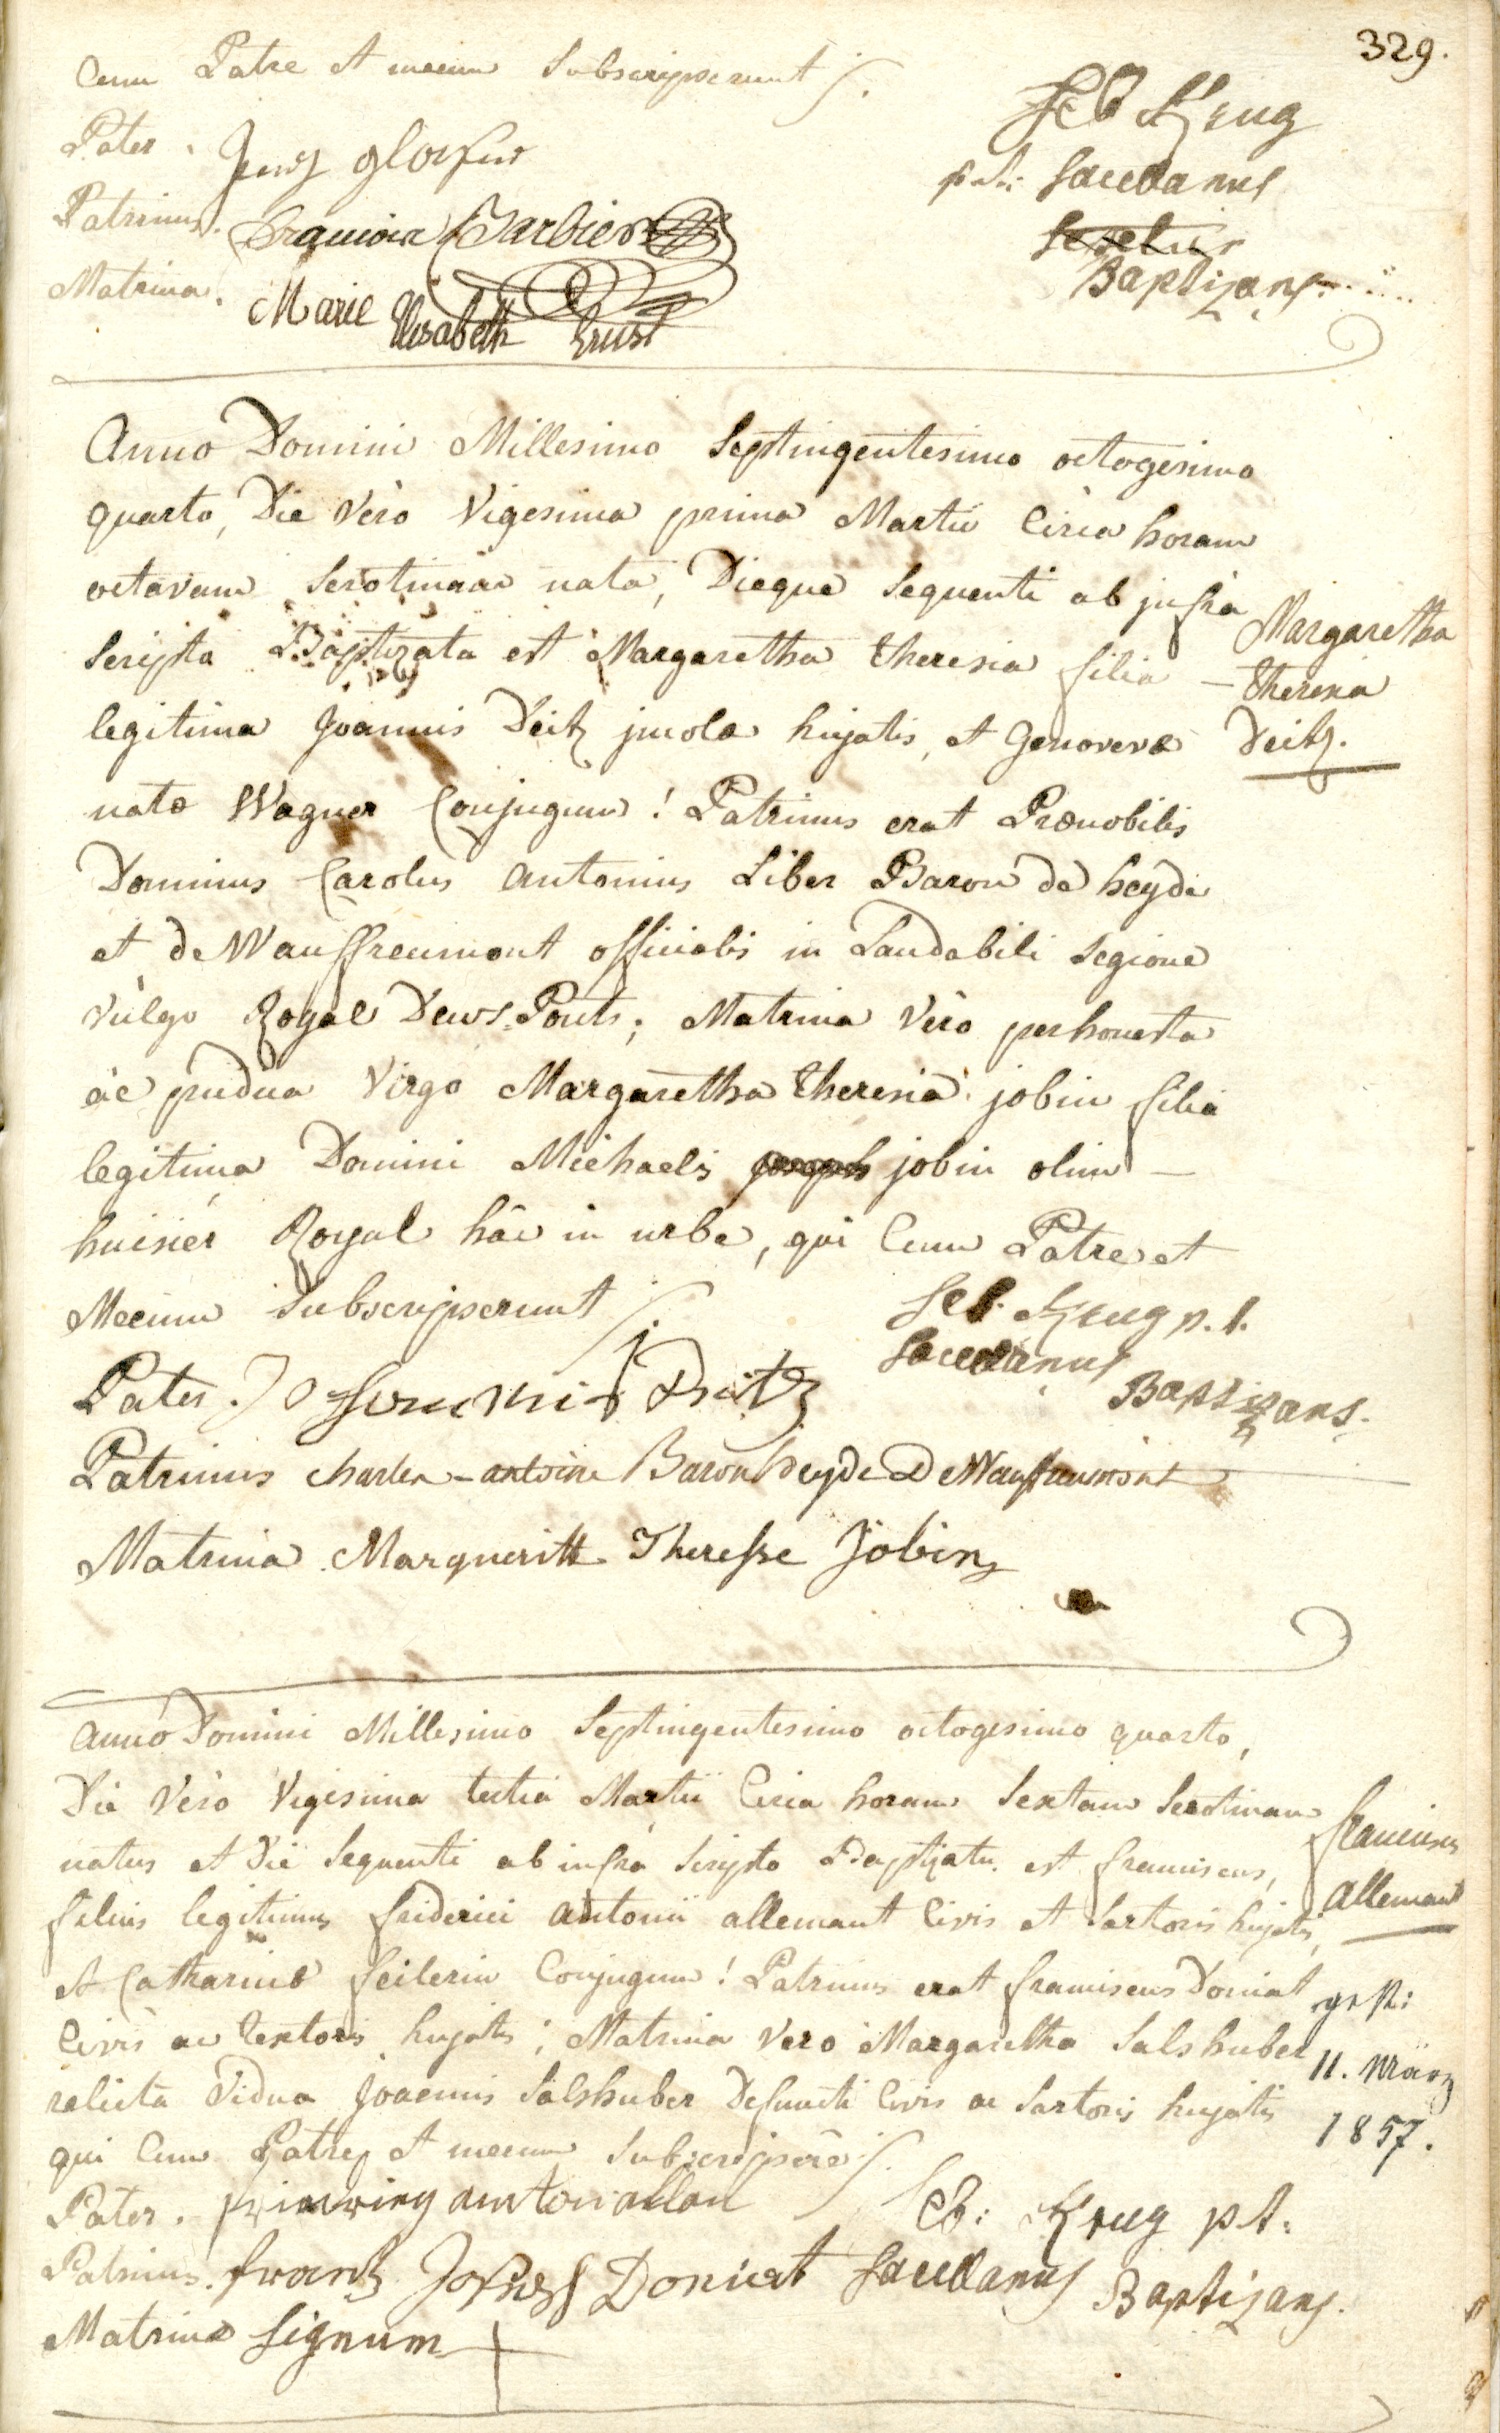 329.
Cum Patre et mecum Subscripserunt
Seb Krug
Pater.
p. t. Sacellanus
Patrinus. Francoix Barbier
Baptizans
Matrina. Marie Elisabeth Ernst
Anno Domini Millesimo Septingentesimo octogesimo
quarto, Die Vero Vigesima prima Martii Circa horam
octavam Serotinam nata, Dieque Sequenti ab infra
Scripto Baptizata est Margaretha Theresia filia –
legitima Joannis Deitz incolæ hujatis, et Genovevæ
natæ Wagner Conjugum! Patrinus erat Prænobilis
Dominus Carolus Antonius Liber Baron de heyde
et de Wauffreumont officialis in Laudabili Legione
vulgo Royal Deux-Ponts; Matrina Vero perhonesta
ac pudica Virgo Margaretha Theresia jobin filia
legitima Domini Michaelis jobin olim –
huisier Royal hâc in urbe, qui Cum Patre et
Mecum Subscripserunt
Margaretha
Theresia
Deitz.
Seb. Krug p. t.
Sacellanus
Baptizans.
Pater. Johannes Deitz
Patrinus Charles-antoine Baron heyde De Wauffreumont
Matrina Margueritt Theresse Jobin
Anno Domini Millesimo Septingentesimo octogesimo quarto,
Die Vero Vigesima tertia Martii Circa horam Sextam Serotinam
natus et Die Sequenti ab infra Scripto Baptizatus est franciscus,
filius legitimus friderici Antonii allemant Civis et Sartoris hujatis,
et Catharinæ Seilerin Conjugum! Patrinus erat franciscus Doniat
Civis ac textoris hujatis; Matrina Vero Margaretha Salshuber
relicta Vidua Joannis Salshuber Defuncti Civis ac Sartoris hujatis
qui Cum Patre et mecum Subscripsere
franciscus
allemant
gest:
11. März
1857.
Pater.
Seb: Krug p t:
Patrinus. frantz Joseph Doniat
Sacellanus
Baptizans.
Matrinæ Signum +